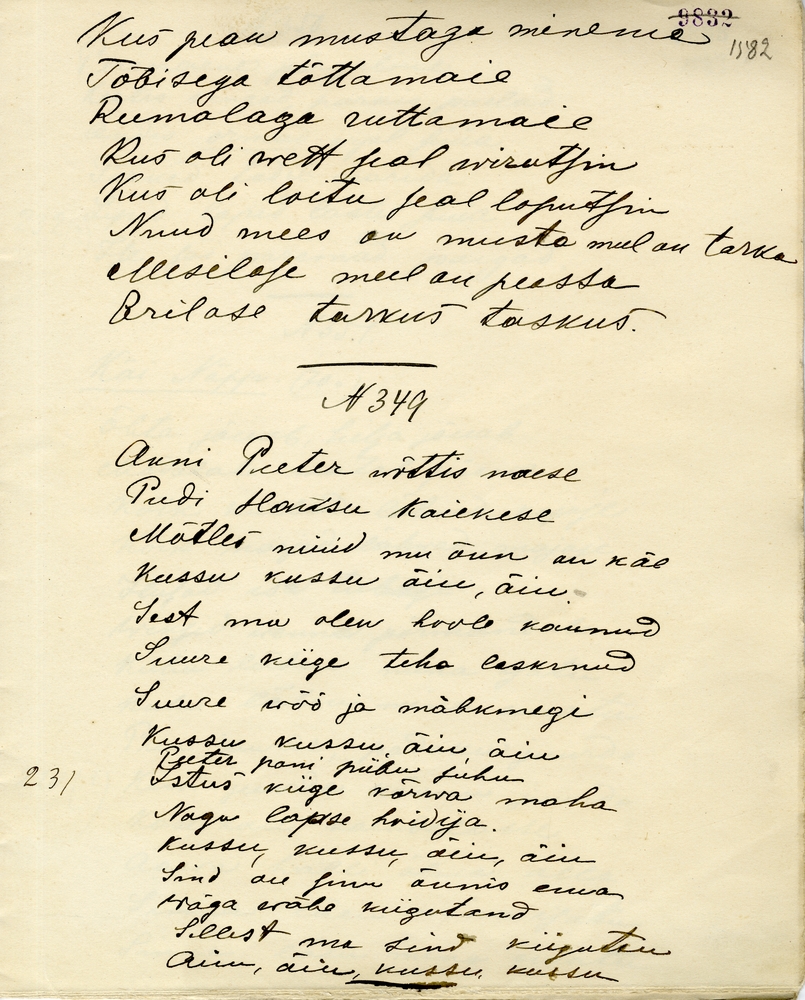 9832
1582
Kus pean mustaga minema
Tõbisega tõttamaie
Rumalaga ruttamaie
Kus oli wett seal wirutsin
Kus oli loitu seal loputsin
Nuud mees on musta meel on tarka
Mesilase meel on peassa
Erilase tarkus taskus.
N 349
Anni Peeter wõttis naese
Pudi Hansu Kaiekese
Mõtles nüüd mu õnn on käe
Kussu kussu äiu, äiu
Sest ma olen hoole kannud
Suure kiige teha lasknud
Suure wöö ja mähkmegi
Kussu kussu äiu äiu
Peeter pani piibu suhu
Istus kiige kõrwa maha
Nagu lapse hoidija.
Kussu, kussu, äiu, äiu
231
Sind on sinu õnnis ema
wäga wähe kiigutand
Sellest ma sind kiigutsu
Aiu, äiu, kussu, kussu